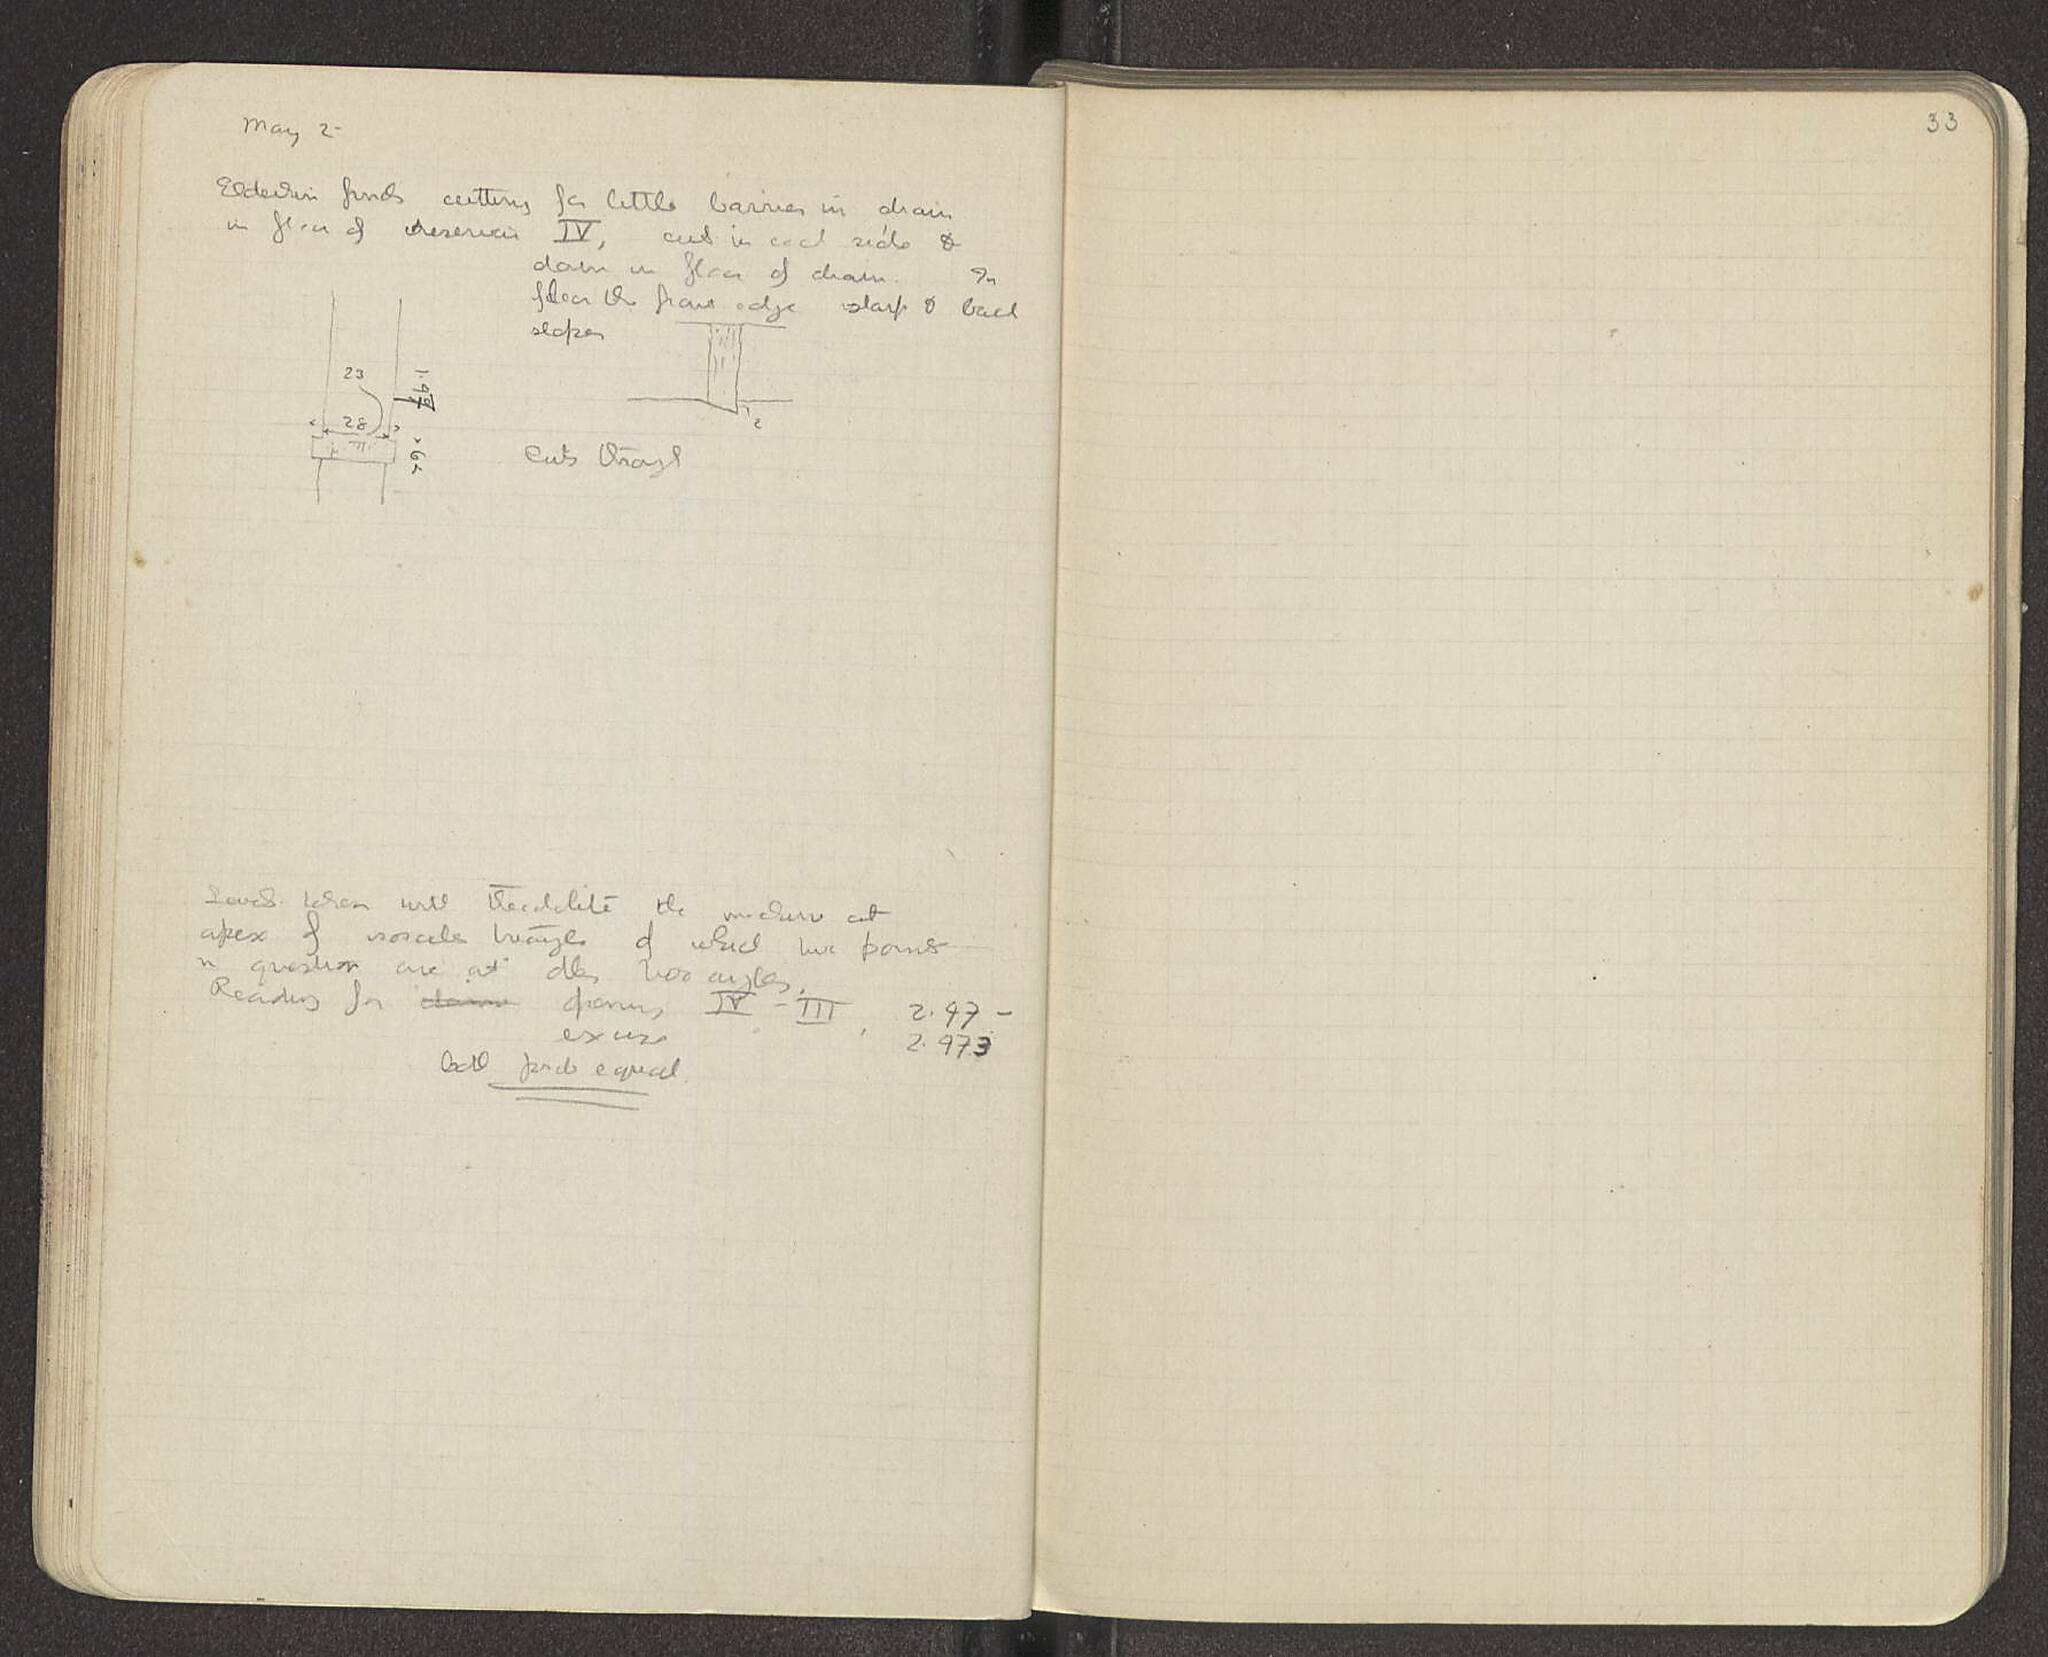 33
May 2
Elderkin finds cutting for little barrier in drain
in floor of reservoir IV, cut in each side &
down in floor of drain. In
floor the front edge sharp & back
slopes
23
1.97
28
2
Cuts through
Levels taken with theodolite the machine at
apex of isosceles triangle of which two points
in question are at other two angles,
Reading for opening IV - III, 2.97 -
2.973
both points equal